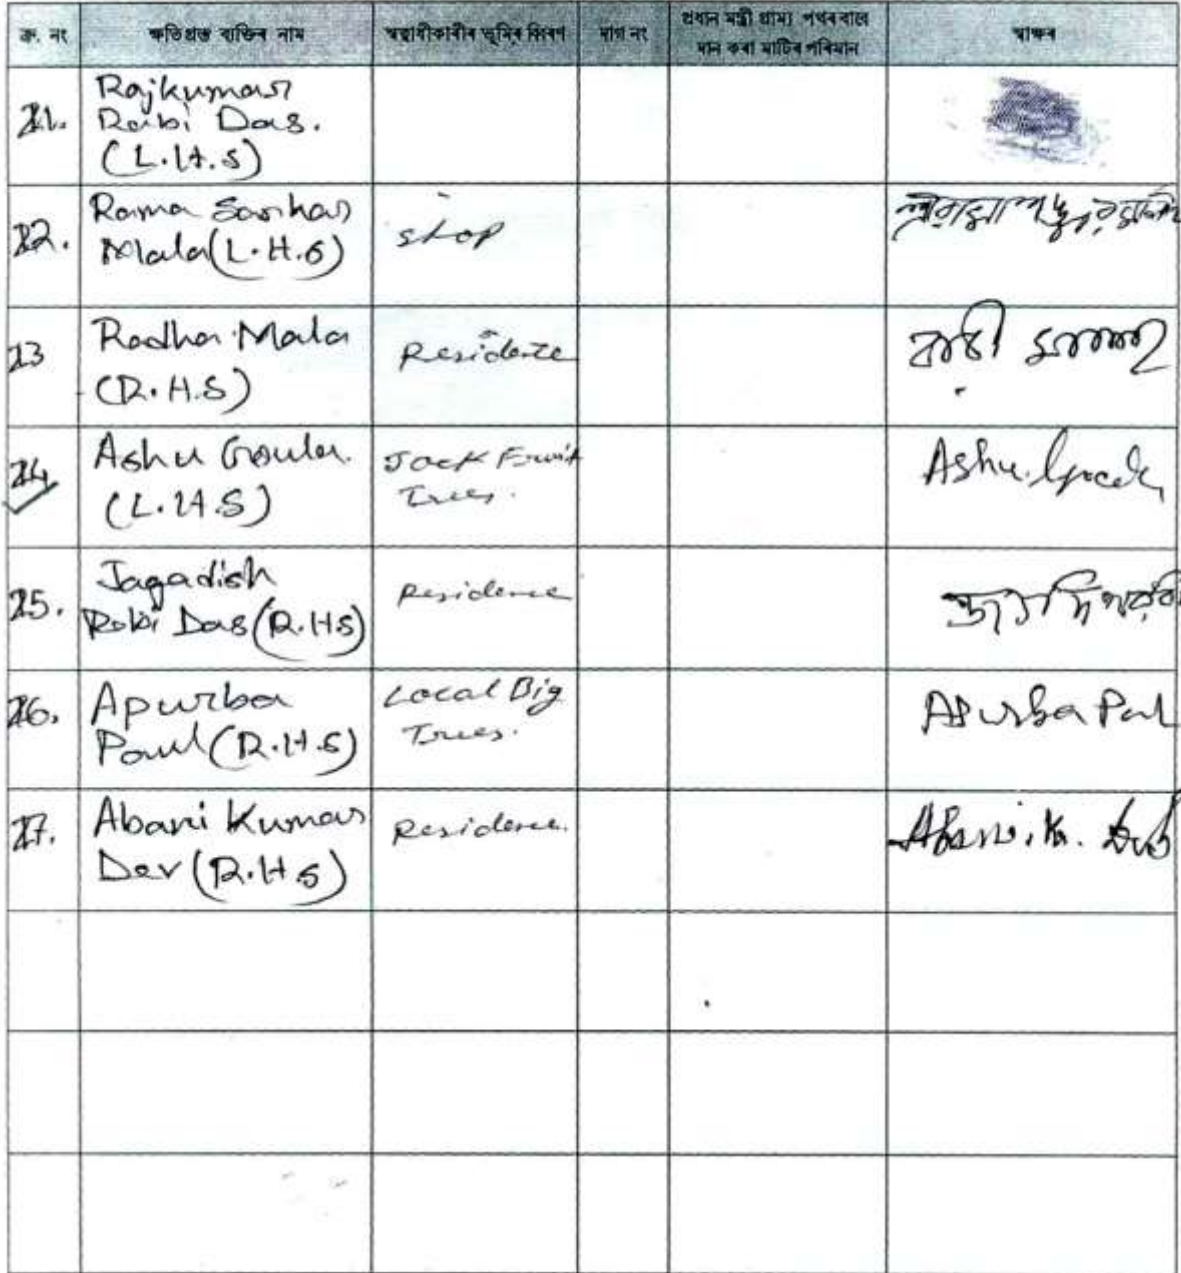 ক্ৰ. নং ক্ষতিগ্ৰস্ত ব্যক্তিৰ নাম স্বত্বাধীকাৰীৰ ভূমিৰ বিৱৰণ দাগ নং প্ৰধান মন্ত্ৰী গ্ৰাম্য পথৰ বাবে
দান কৰা মাটিৰ পৰিমান স্বাক্ষৰ
21. Rajkumar
Rabi Das.
(L.H.S)
22. Rama Sarkar
Mala (L.H.S) shop
23 Radha Mala
(R.H.S) Residence
24 Ashu Gowla.
(L.H.S) Jack Fruit
Trees. Ashu Gowla
25. Jagadish
Robi Das (R.H.S) Residence
26. Apurba
Paul (R.H.S) Local Big
Trees. Apurba Paul
27. Abani Kumar
Dev (R.H.S) Residence. Abani. Kr. Deb